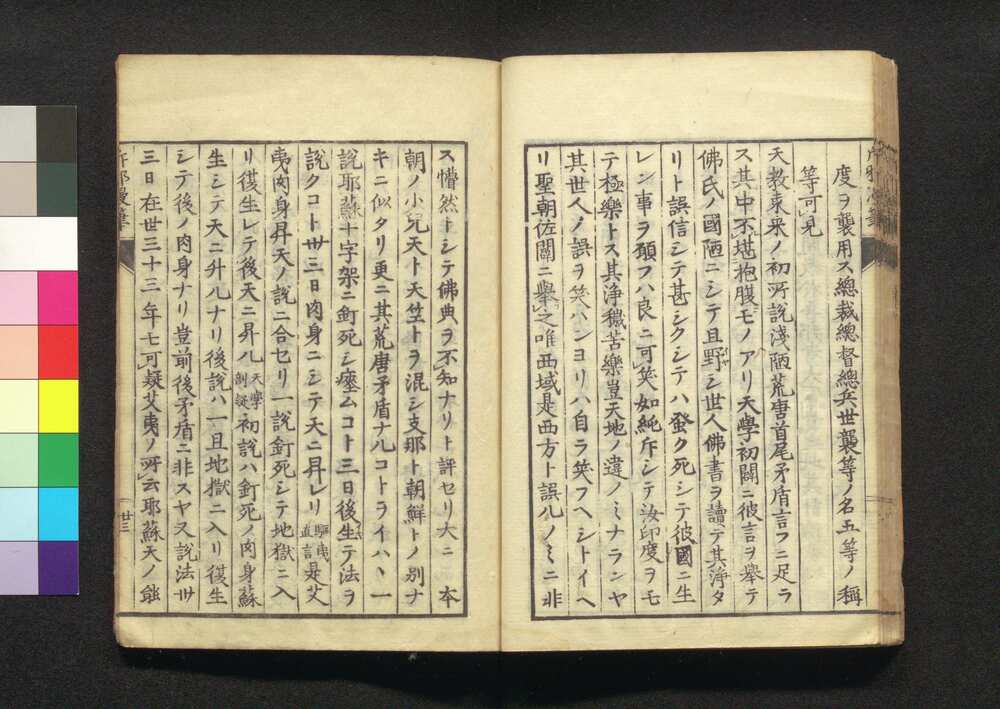 度ヲ襲用ス總裁總督總兵世襲等ノ名五等ノ稱
等可見
天教東来ノ初所説淺陋荒唐首尾矛盾言フニ足ラ
ス其中不堪抱腹モノアリ天學初闢ニ彼言ヲ舉テ
佛氏ノ國陋ニシテ且野シ世人佛書ヲ讀テ其淨タ
リト誤信シテ甚シクシテハ蚤ク死シテ彼國ニ生
レン事ヲ願フハ良ニ可笑如純斥シテ汝印度ヲモ
テ極樂トス其淨穢苦樂豈天地ノ違ノミナランヤ
其世人ノ誤ヲ笑ハンヨリハ自ラ笑フヘシトイヘ
リ聖朝佐闢ニ舉之唯西域是西方ト誤ルノミニ非
ス懵然トシテ佛典ヲ不知ナリト評セリ大ニ 本
朝ノ小兒天ト天竺トヲ混シ支那ト朝鮮トノ別ナ
キニ似タリ更ニ其荒唐矛盾ナルコトライハヽ一
説耶蘇十字架ニ釘死シ瘞ムコト三日後生テ法ヲ
説クコト卅三日肉身ニシテ天ニ昇レリ 驅曳直言 是艾
夷肉身昇天ノ説ニ合セリ一説釘死シテ地獄ニ入
リ復生レテ後天ニ昇ル 天學剖疑 初説ハ釘死ノ肉身蘇
生シテ天ニ升ルナリ後説ハ一旦地獄ニ入リ復生
シテ後ノ肉身ナリ豈前後矛盾ニ非スヤ又説法卅
三日在世三十三年七可疑艾夷ノ所云耶蘇天ノ能
廿三